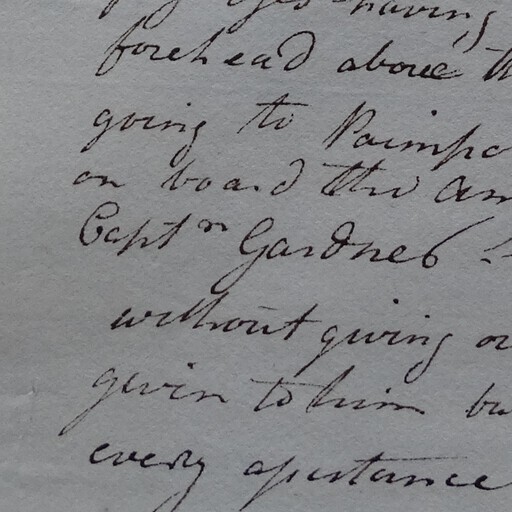 having
forehead above th
going to Paimpo
on board the Am
Captn Gardner
without giving or
given to him bu
every assistance